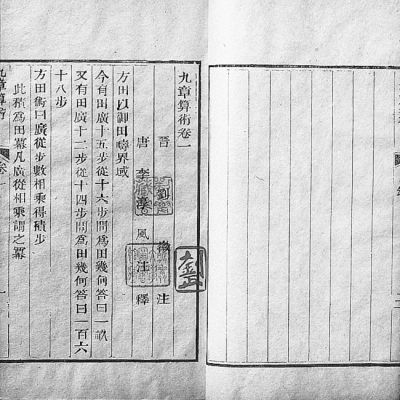 九章算術卷一
晉 劉 徽 注
唐 李淳風 注釋
方田以御田疇界域
今有田廣十五步從十六步問為田幾何答曰一畝
又有田廣十二步從十四步問為田幾何答曰一百六
十八步
方田術曰廣從步數相乘得積步
此積為田冪凡廣從相乘謂之冪
九章算術
卷一
一